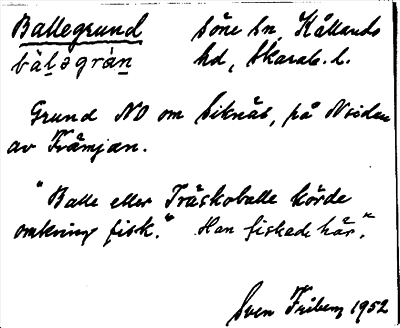 Ballegrund Söne sn, Kållands
bäḷəgràn hd, Skarab. l.
Grund NO om Siknäs, på N sidan
av Främjan.
"Balle eller Träskoballe körde
omkring fisk." Han fiskade här."
Sven Friberg 1952